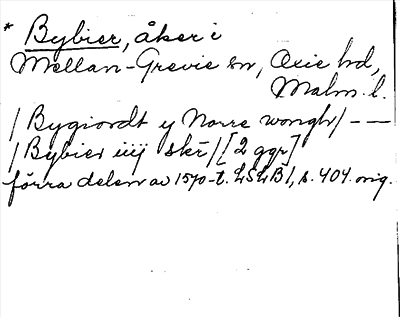 * Bybier, åker i
Mellan-Grevie sn, Oxie hd,
Malm. l.
/ Bygiordt y Norre wongh / — —
/ Bybier iiij skr̄ / [2 ggr]
förra delen av 1570-t. LSLB1, s. 404. orig.